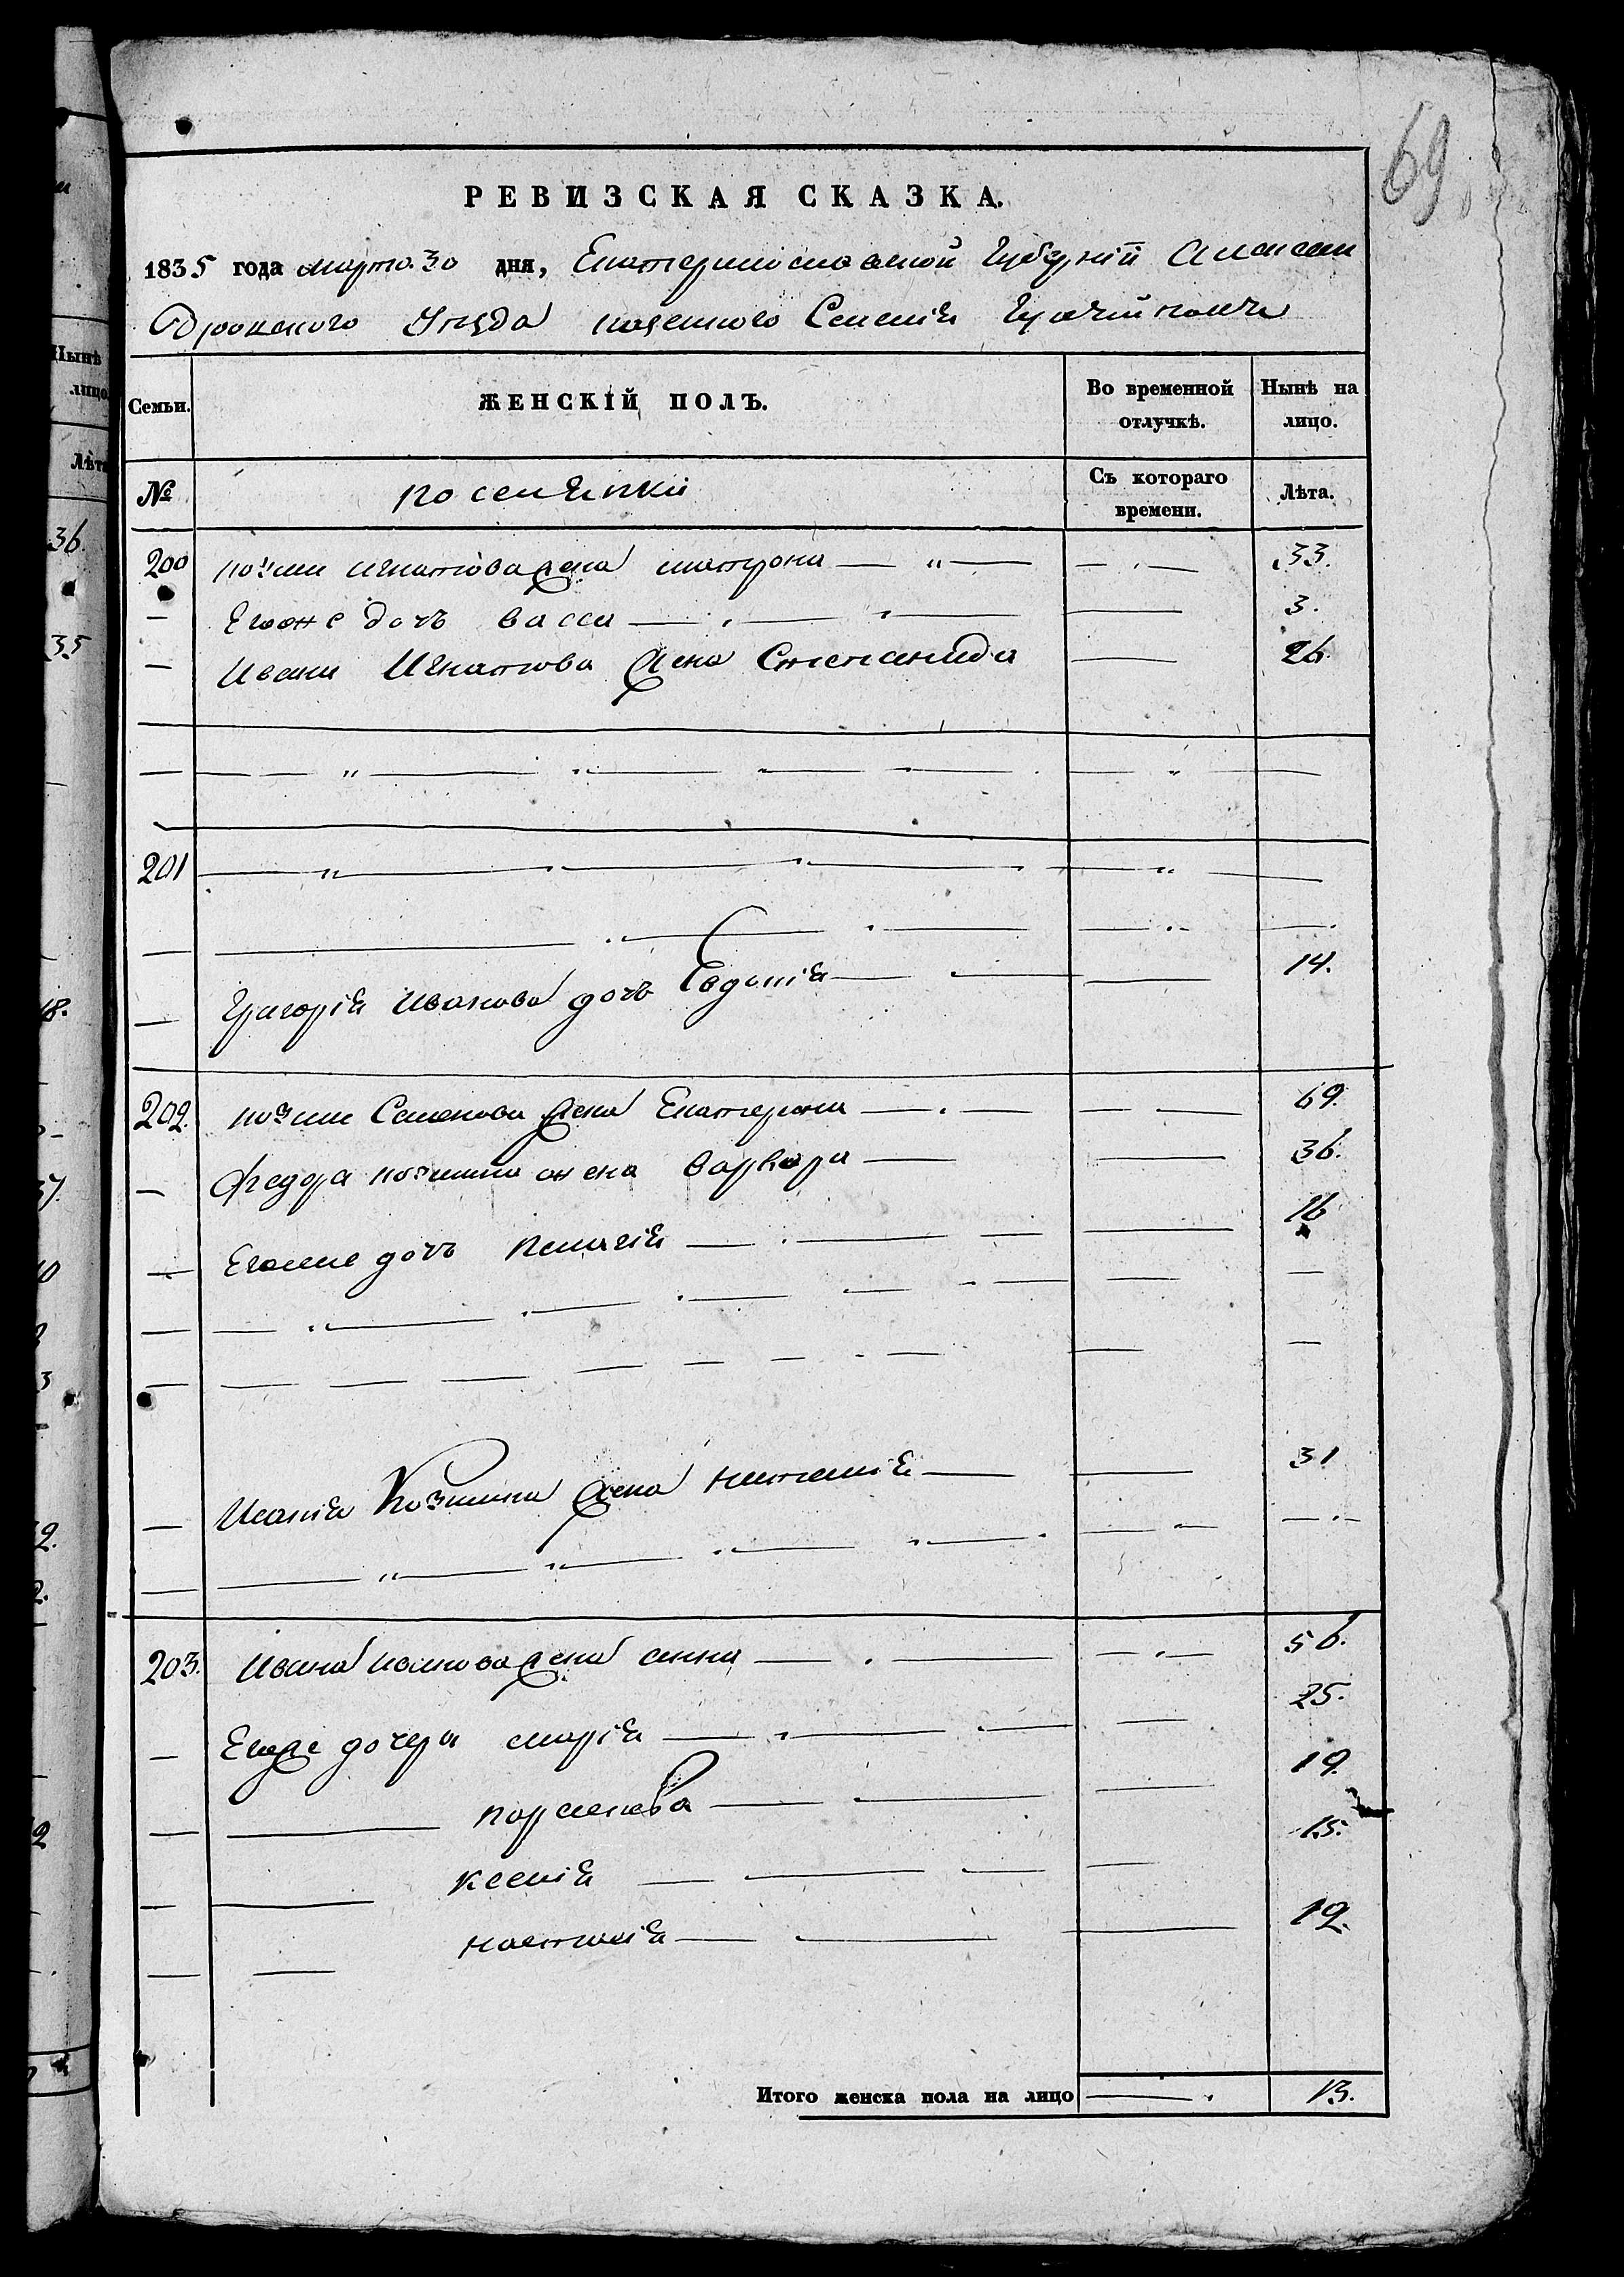 69
РЕВИЗСКАЯ СКАЗКА.
1835 года марта 30 дня, Екатеринославской Губерніи Алексан
Дровскаго Уезда казенного Селенія
Семьи. ЖЕНСКІЙ ПОЛЪ. Во временной отлучкѣ. Нынѣ на лицо.
№ поселянки Съ котораго времени. Лѣта.
200 козми игнатова жена матрона — „ — — „ — 33.
— Егоже дочъ васса — — — 3.
— Ивана Игнатова жена Степанида — 26.
— — — „ — „ — — — — „ —
201 — „ — — — — „ —
— — — — — — —
— Григорія Иванова дочъ Евдокія — — — 14.
202. козми Семенова жена Екатерина — — — — 69.
— Федора козмина жена варвара — — 36.
— Егоже дочъ пелагія — — — — 16
— — — — — — — — —
— — — — — — — — — —
— Исаія Козмина жена наталія — — 31
— — „ — „ — — — — — —
203. Ивана иванова жена анна — — — — 56.
— Егоже дочери марія — — — — 25.
— — парасковья — — — 19.
— — ксенія — — — — 15.
— — настасія — — — 12.
Итого женска пола на лицо — 13.